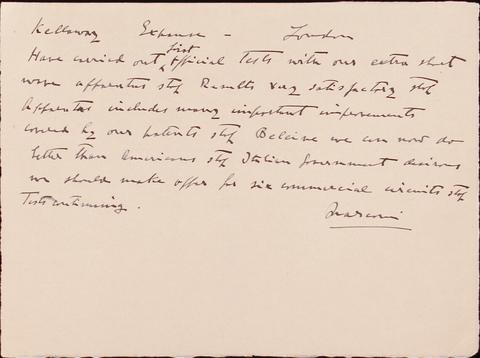 Kellaway Expanse - London
Have carried out first official tests with our extra short
wave apparatus stop Results very satisfactory stop
Apparatus includes many important improvements
covered by our patents stop Beleive we can now do
better than Americans stop Italian Government desires
we should make offer for six commercial circuits stop
Tests continuing.
Marconi